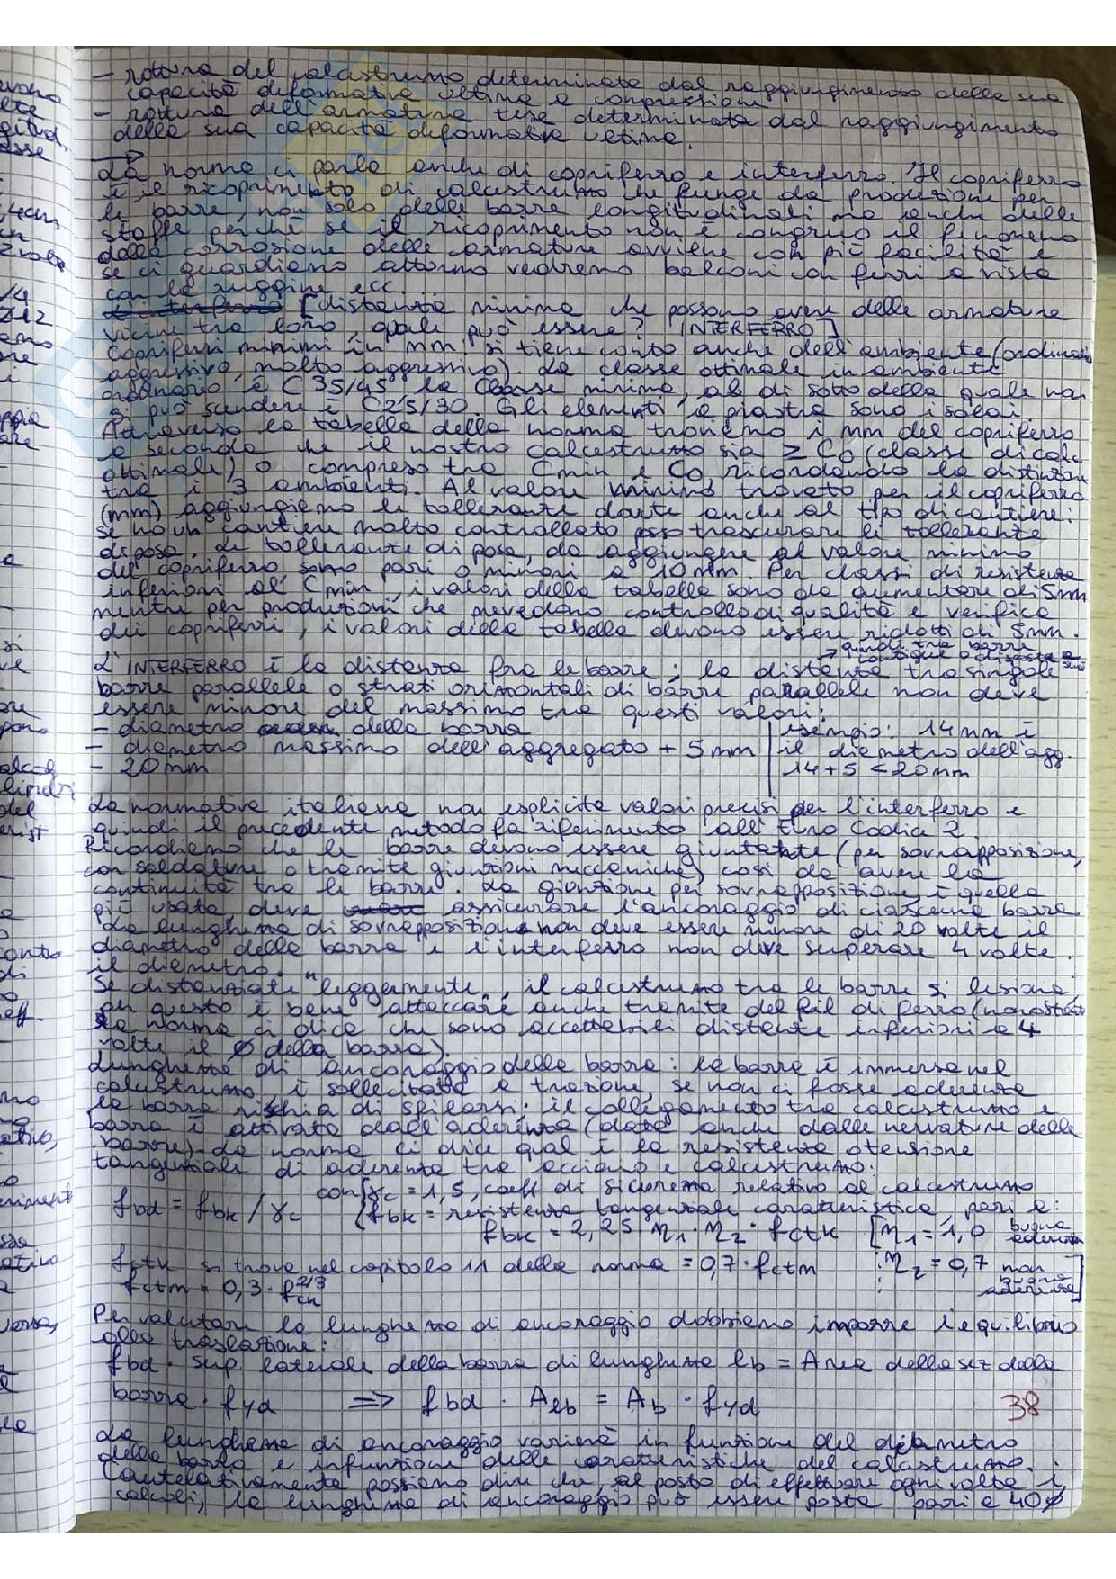 - rottura del calcestruzzo determinata dal raggiungimento della sua
capacità deformativa ultima a compressione
- rottura dell'armatura tesa determinata dal raggiungimento
della sua capacità deformativa ultima.
La norma ci parla anche di copriferro e interferro. Il copriferro
è il ricoprimento di calcestruzzo che funge da protezione per
le barre, non solo delle barre longitudinali ma anche delle
staffe perché se il ricoprimento non è congruo il fenomeno
della corrosione delle armature avviene con più facilità e
se ci guardiamo attorno vedremo balconi con ferri a vista
con la ruggine ecc.
[distanza minima che possono avere delle armature
vicine tra loro, quale può essere? INTERFERRO]
Copriferri minimi in mm: si tiene conto anche dell'ambiente (ordinario
aggressivo, molto aggressivo). La classe ottimale in ambiente
ordinario è C35/45 la classe minima, al di sotto della quale non
si può scendere è C25/30. Gli elementi a piastra sono i solai.
Attraverso la tabella della norma troviamo i mm del copriferro
a seconda che il nostro calcestruzzo sia ≥ C0 (classe di calc
ottimale) o compreso tra Cmin e C0 ricordando la distinzione
tra i 3 ambienti. Al valore minimo trovato per il copriferro
(mm) aggiungiamo le tolleranze dovute anche al tipo di cantiere:
se ho un cantiere molto controllato posso trascurare le tolleranze
di posa. Le tolleranze di posa, da aggiungere al valore minimo
del copriferro sono pari o minori a 10mm. Per classi di resistenza
inferiori al Cmin, i valori della tabella sono da aumentare di 5mm
mentre per produzioni che prevedono controllo di qualità e verifica
dei copriferri, i valori della tabella devono essere ridotti di 5mm.
L'INTERFERRO è la distanza fra le barre; la distanza tra singole
barre parallele o strati orizzontali di barre parallele non deve
essere minore del massimo tra questi valori:
- diametro della barra
- diametro massimo dell'aggregato + 5mm
- 20mm
esempio: 14mm è
il diametro dell'agg.
14+5 < 20mm
La normativa italiana non esplicita valori precisi per l'interferro e
quindi il precedente metodo fa riferimento all'Euro Codice 2.
Ricordiamo che le barre devono essere giuntate (per sovrapposizione,
con saldature o tramite giunzioni meccaniche) così da avere la
continuità tra le barre. La giunzione per sovrapposizione è quella
più usata deve assicurare l'ancoraggio di ciascuna barra.
La lunghezza di sovrapposizione non deve essere minore di 20 volte il
diametro della barra e l'interferro non deve superare 4 volte
il diametro.
Se distanziate "leggermente", il calcestruzzo tra le barre si lesiona,
per questo è bene attaccare anche tramite del fil di ferro (nonostante
la norma ci dice che sono accettabili distanze inferiori a 4
volte il Ø della barra).
Lunghezza di ancoraggio delle barre: la barra è immersa nel
calcestruzzo è sollecitata a trazione se non ci fosse aderenza
la barra rischia di sfilarsi; il collegamento tra calcestruzzo e
barra è attivato dall'aderenza (data anche dalle nervature delle
barre). La norma ci dice qual è la resistenza o tensione
tangenziale di aderenza tra acciaio e calcestruzzo:
fbd = fbk / γc con γc = 1,5, coeff di sicurezza relativo al calcestruzzo
fbk = resistenza tangenziale caratteristica, pari a:
fbk = 2,25 η1 · η2 · fctk [η1 = 1,0 buona aderenza
fctk si trova nel capitolo 11 della norma = 0,7 · fctm ; η2 = 0,7 non buona aderenza]
fctm = 0,3 · fck^2/3
Per valutare la lunghezza di ancoraggio dobbiamo imporre l'equilibrio
alla traslazione:
fbd · sup. laterale della barra di lunghezza lb = Area della sez della
barra · fyd ⇒ fbd · Alb = Ab · fyd
38
La lunghezza di ancoraggio varierà in funzione del diametro
della barra e in funzione delle caratteristiche del calcestruzzo.
Cautelativamente possiamo dire che, al posto di effettuare ogni volta i
calcoli, la lunghezza di ancoraggio può essere posta pari a 40ø